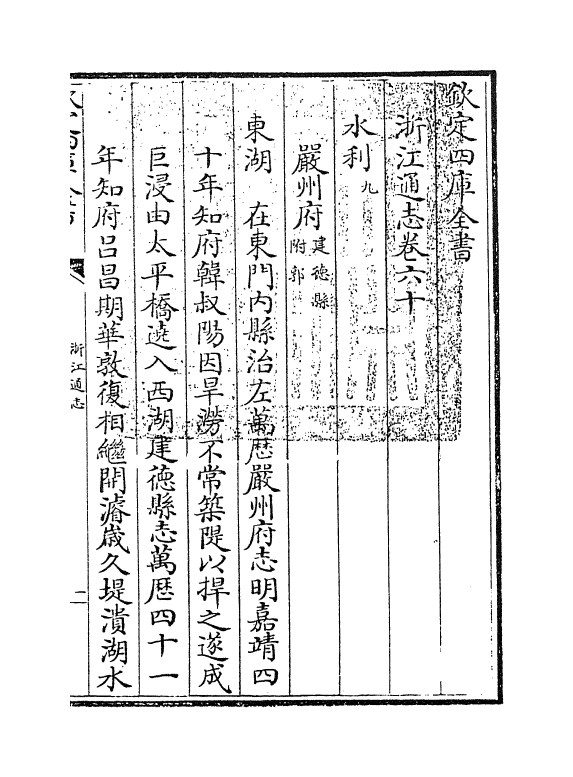 欽定四庫全書
浙江通志卷六十
水利九
嚴州府建德縣附郭
東湖　在東門内縣治左萬歴嚴州府志明嘉靖四
十年知府韓叔陽因旱澇不常築隄以捍之遂成
巨浸由太平橋遶入西湖建德縣志萬歴四十一
年知府吕昌期華敦復相繼開濬歳久堤潰湖水
浙江通志